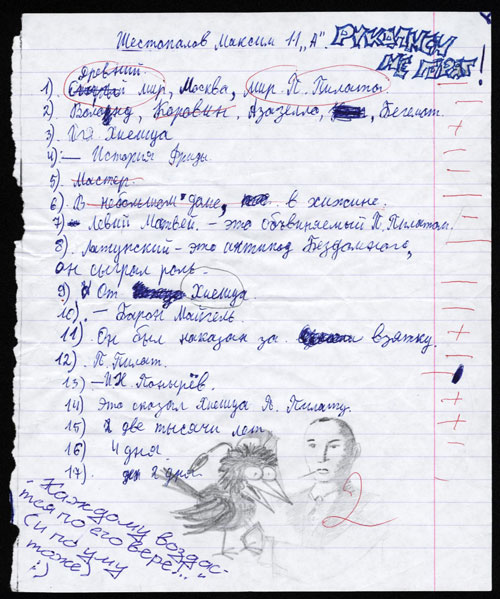 Шестопалов Максим 11 „А".
РУКОПИСИ
НЕ ГОРЯТ!
Древний
1). мир, Москва, мир П. Пилата.
2). Воланд, Коровин, Азазелло, Бегемот.
3). Иешуа
4). – История Фриды
5). Мастер.
6). В небольшом доме, в хижине.
7) – Левий Матвей. – это обвиняемый П. Пилатом.
8). Латунский – это антипод Бездомного,
он сыграл роль –
9) От Иешуа.
10). – Барон Майгель.
11). Он был наказан за взятку.
12). П. Пилат.
13) – И.Н. Понырёв.
14) Это сказал Иешуа П. Пилату.
15) 2 две тысячи лет
16) 4 дня.
17). 2 дня.
2
"Каждому воздас-
тся по его вере!..."
(и по уму
тоже)
:)